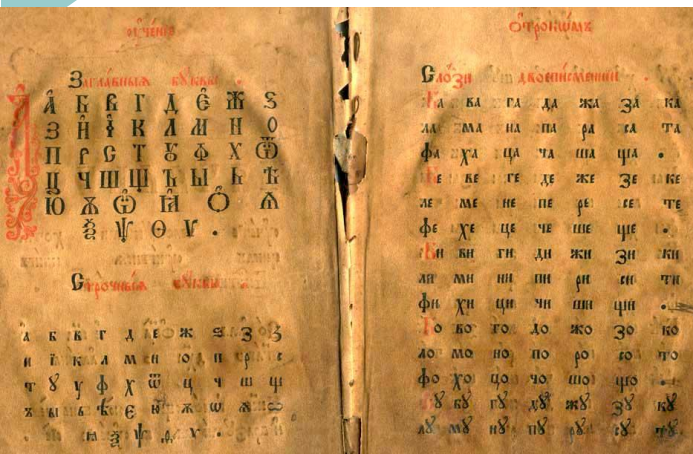 ѹче́нїе
Заглавныя бꙋквы .
А Б В Г Д Е Ж Ѕ
З И І К Л М Н О
П Р С Т Ꙋ Ф Х Ѿ
Ц Ч Ш Щ Ъ Ы Ь Ѣ
Ю Ѫ Ѡ Ꙗ Ѻ Ѧ
Ѯ Ѱ Ѳ Ѵ .
Строчныѧ
а б в г д е ж ѕ З
и ї к л м н о п р с
т ꙋ у ф х ѿ ц ч ш щ
ъ ы ь ѣ є ю ѫ ѡ ѧ
ѯ ѱ ѵ .
Слози двоеписменнии .
ба ва га да жа за ка
ла ма на па ра са та
фа ха ца ча ша ща .
бе ве ге де же зе ке
ле ме не пе ре се те
фе хе це че ше ще .
би ви ги ди жи зи ки
ли ми ни пи ри си ти
фи хи ци чи ши щи .
бо во го до жо зо ко
ло мо но по ро со то
фо хо цо чо шо що .
бꙋ гꙋ дꙋ жꙋ зꙋ кꙋ
лꙋ мꙋ нꙋ пꙋ рꙋ сꙋ тꙋ